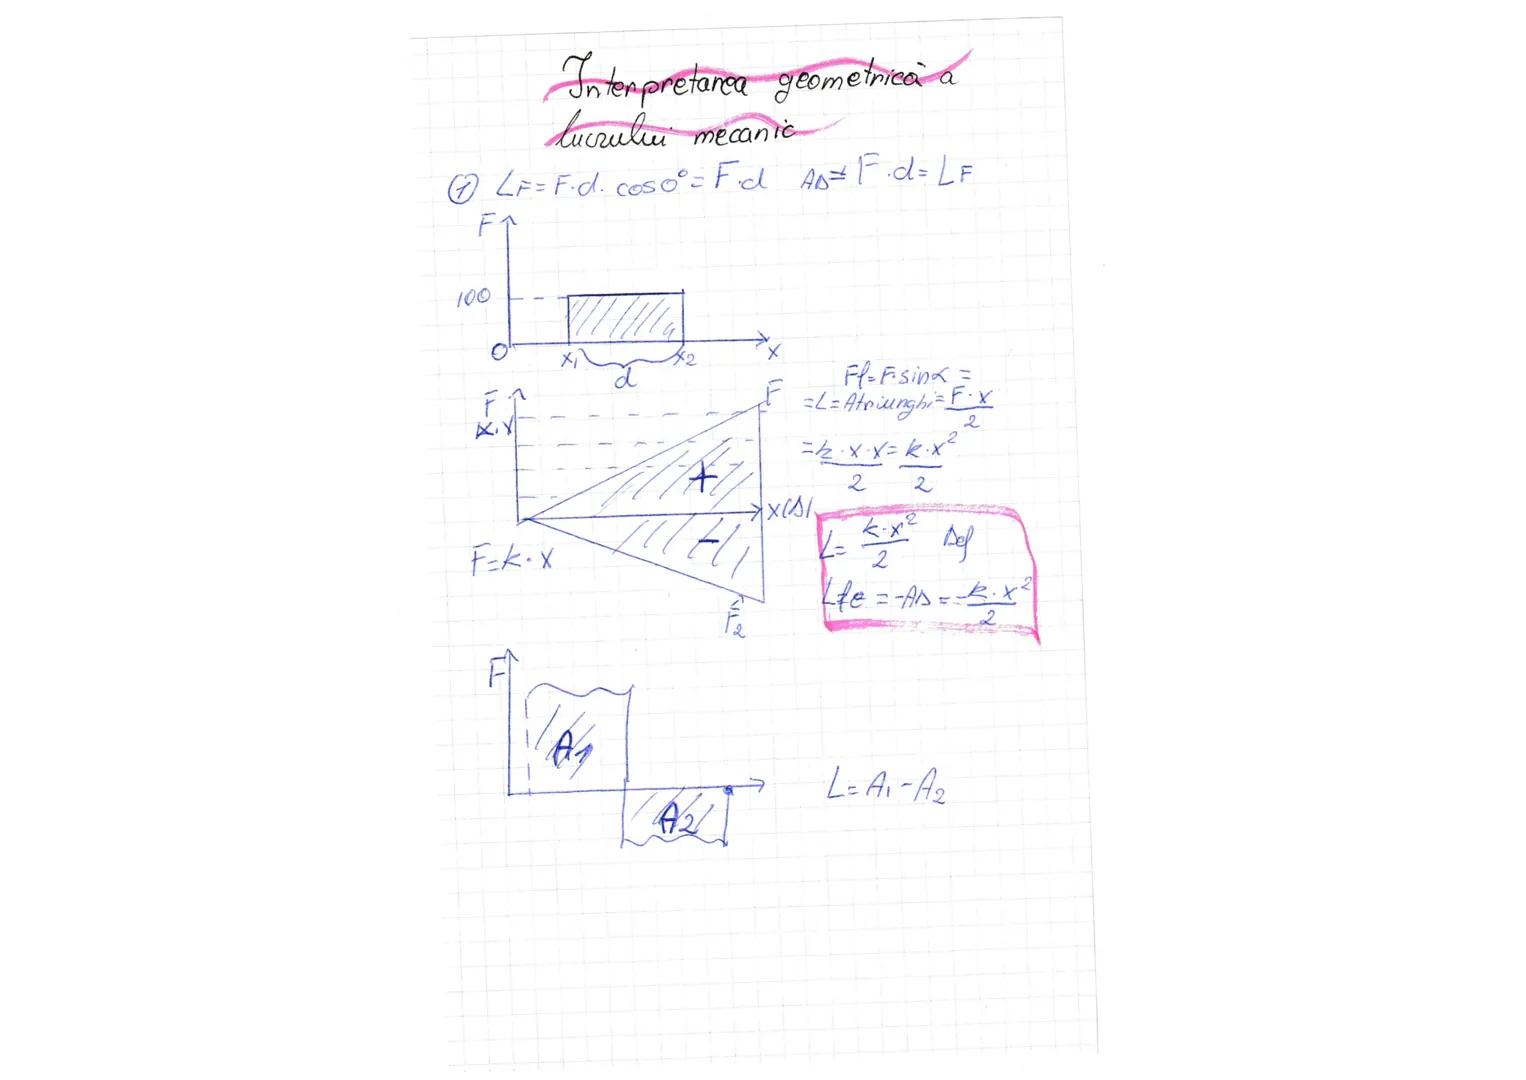 Interpretarea geometrică a
lucrului mecanic
① LF = F·d· cos 0° = F·d   F·d = LF
F
100
O
x1
x2
x
d
F
k·x
F
+
x(Δl
-
F = k·x
F2
Ff = F·sinα =
= L = Atriunghi = F·x/2
= k·x·x/2 = k·x²/2
L = k·x²/2 Def
Lfe = -AΔ = -k·x²/2
F
A1
A2
L = A1 - A2